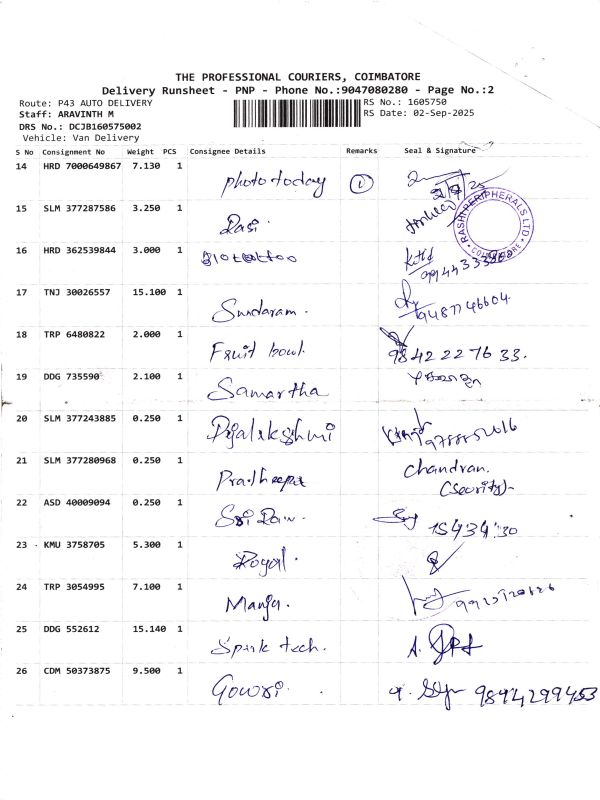 THE PROFESSIONAL COURIERS, COIMBATORE
Delivery Runsheet - PNP - Phone No.:9047080280 - Page No.:2
Route: P43 AUTO DELIVERY RS No.: 1605750
Staff: ARAVINTH M RS Date: 02-Sep-2025
DRS No.: DCJB160575002
Vehicle: Van Delivery
S No Consignment No Weight PCS Consignee Details Remarks Seal & Signature
14 HRD 7000649867 7.130 1 phototoday 1
15 SLM 377287586 3.250 1 Rasi. RASHI PERIPHERALS LTD COIMBATORE
16 HRD 362539844 3.000 1
17 TNJ 30026557 15.100 1 Sundaram. 9487746604.
18 TRP 6480822 2.000 1 Fruit bowl. 9842227633.
19 DDG 735590 2.100 1 Samartha
20 SLM 377243885 0.250 1
21 SLM 377280968 0.250 1 Pradheepa Chandran.
(Security)-
22 ASD 40009094 0.250 1 Sri Ram. 15434:30
23 KMU 3758705 5.300 1 Royal.
24 TRP 3054995 7.100 1 Manju.
25 DDG 552612 15.140 1 Spark tech.
26 CDM 50373875 9.500 1 Gowri. 9894299453